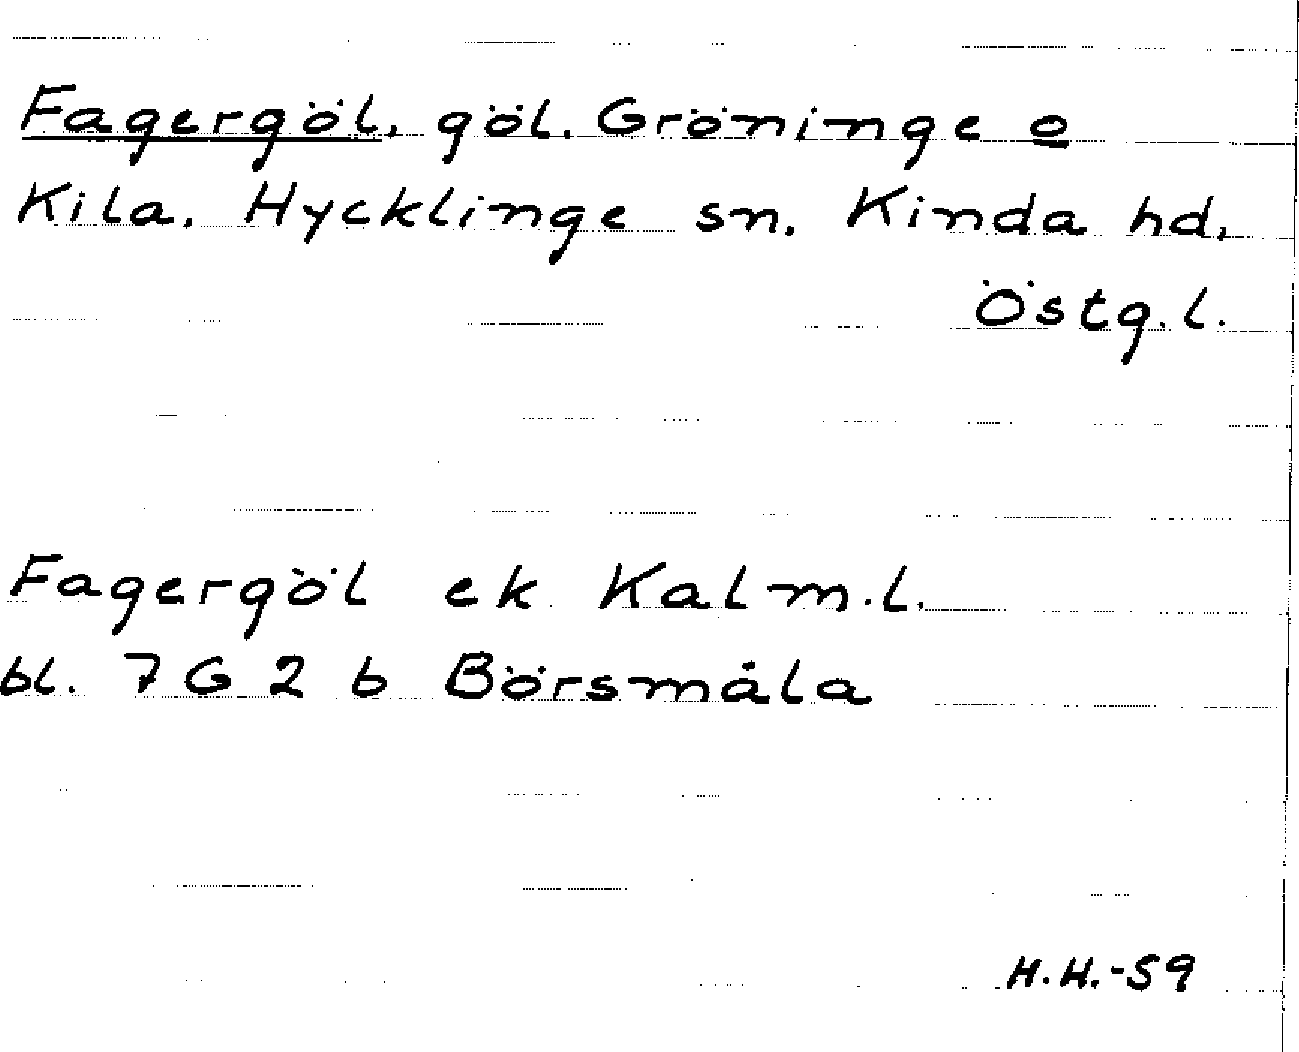 Fagergöl, göl. Gröninge o
Kila. Hycklinge sn. Kinda hd,
Östg.l.
Fagergöl ek Kalm.l.
bl. 7 G 2 b Börsmåla
H.H.-59